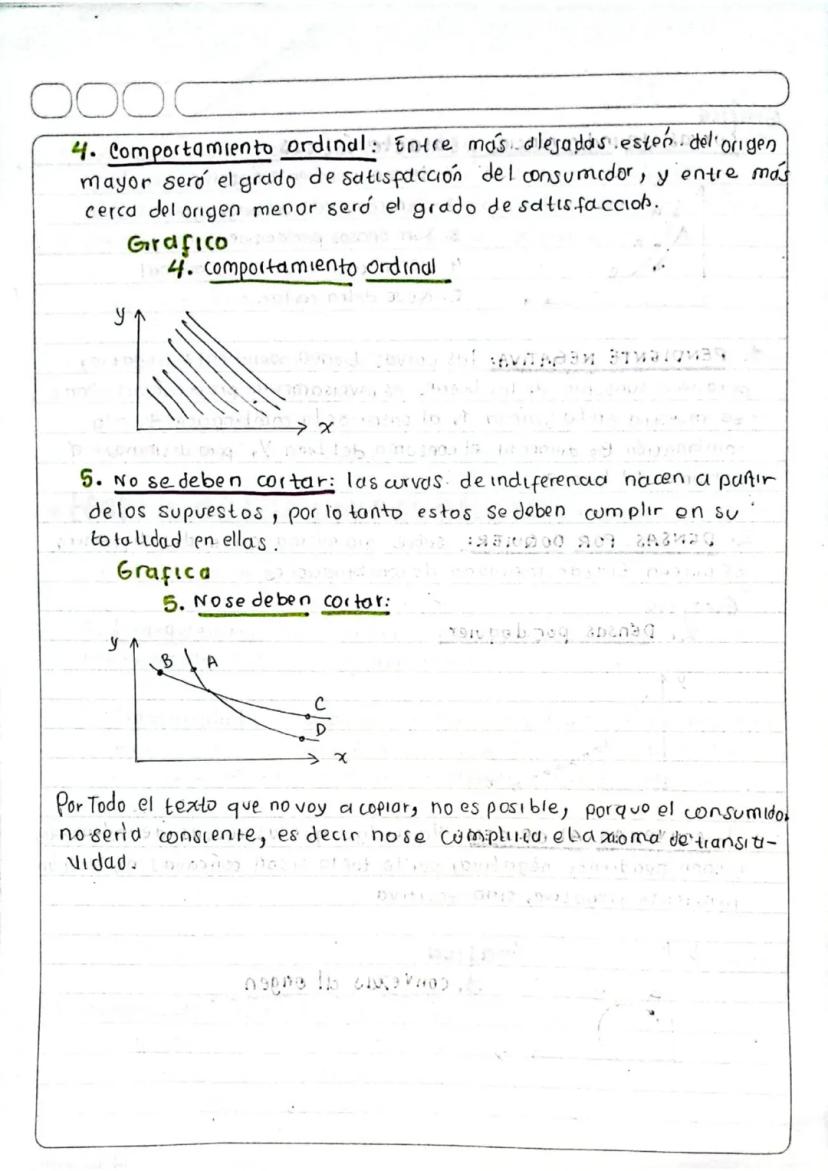 4. Comportamiento ordinal: Entre más alejadas estén del origen
mayor será el grado de satisfacción del consumidor, y entre más
cerca del origen menor será el grado de satisfacción.
Grafico
4. comportamiento ordinal
y
x
5. No se deben cortar: las curvas de indiferencia nacen a partir
de los supuestos, por lo tanto estos se deben cumplir en su
totalidad en ellas.
Grafica
5. No se deben cortar:
y
B A
C
D
x
Por Todo el texto que no voy a copiar, no es posible, porque el consumidor
no seria consiente, es decir no se cumpliria el axioma de transiti-
vidad.